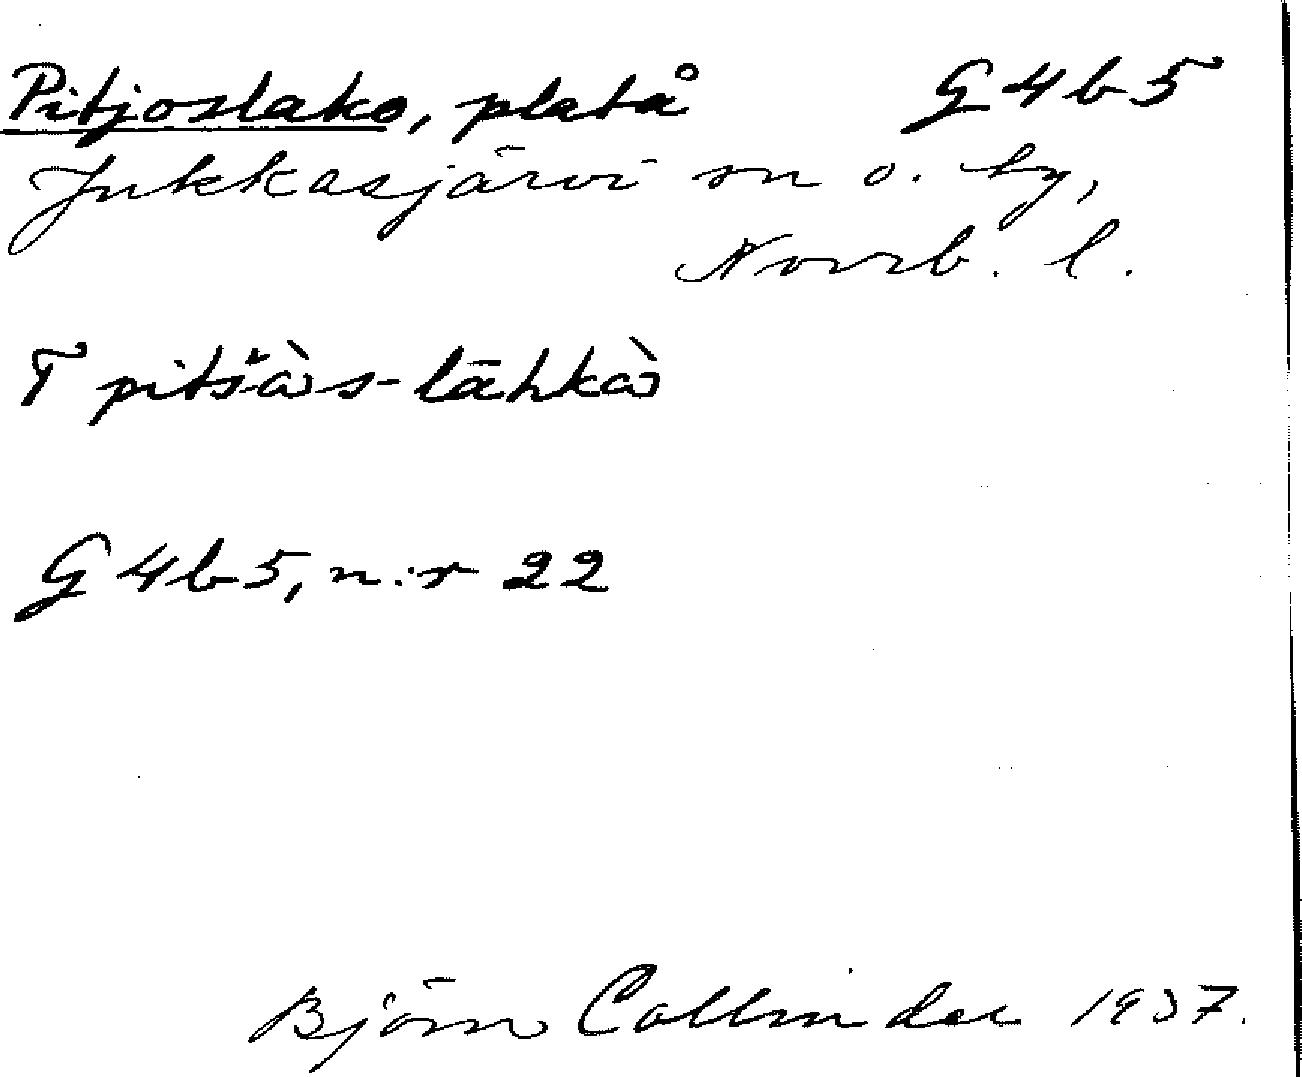 Pitjoslako, platå G4b5
Jukkasjärvi sn o. by,
Norrb. l.
T pitšàs-lāhkà
G4b5, n:r 22
Björn Collinder 1937.